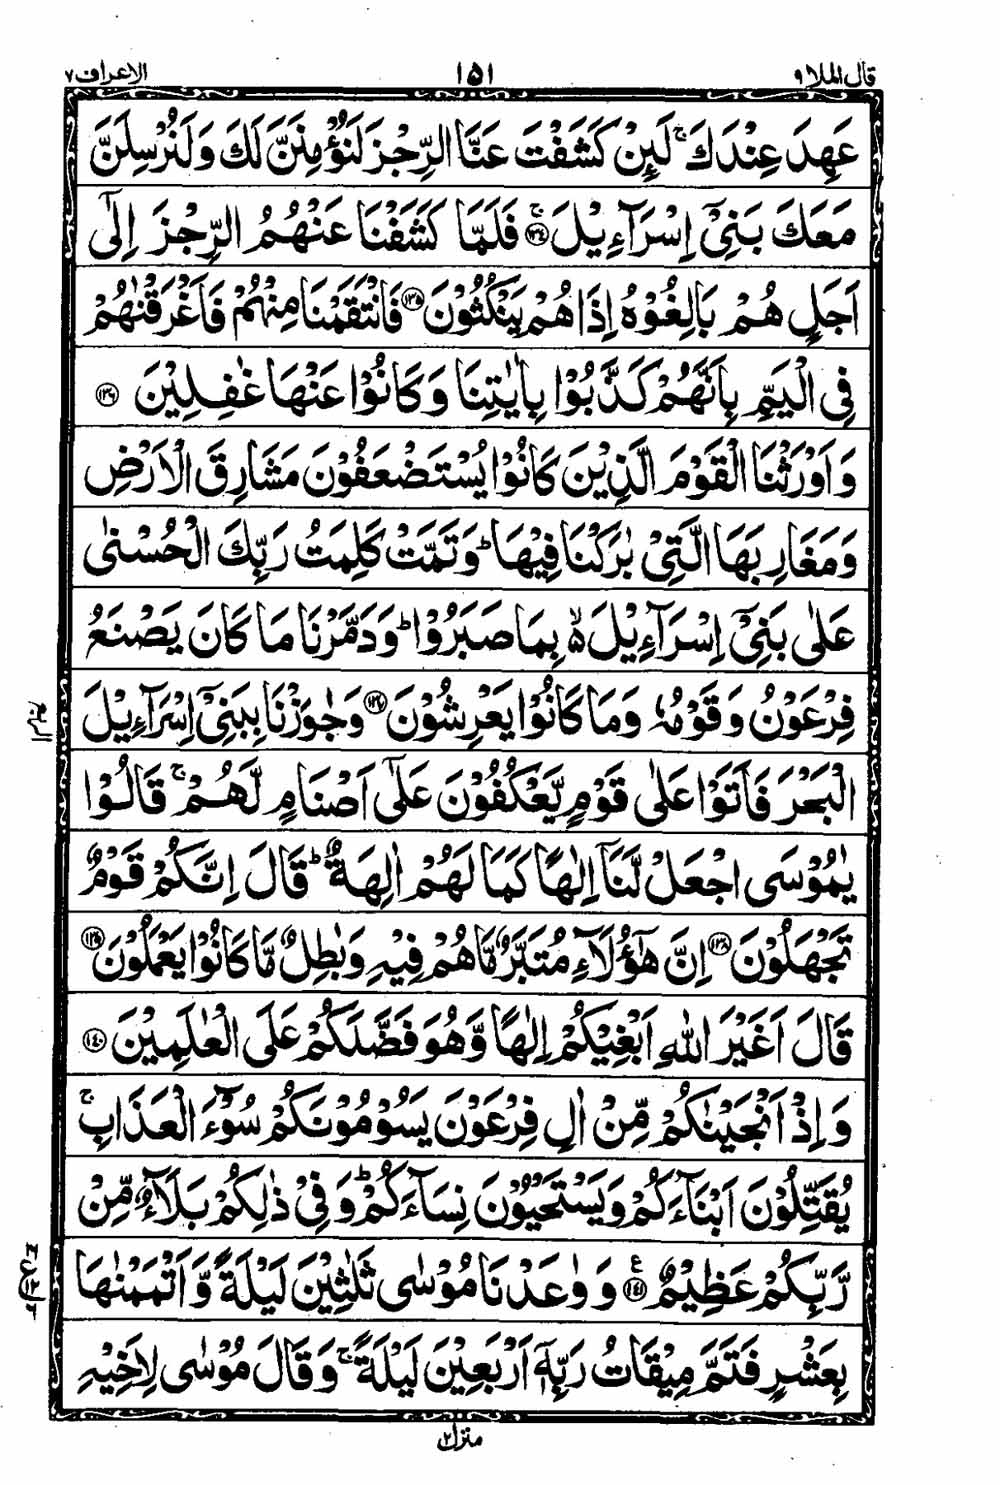 قال الملا ٩ ١٥١ الاعراف ٧
عَهِدَ عِنْدَكَ ۚ لَىِٕنْ كَشَفْتَ عَنَّا الرِّجْزَ لَنُؤْمِنَنَّ لَكَ وَلَنُرْسِلَنَّ
مَعَكَ بَنِىْٓ اِسْرَآءِيْلَ ۚ‏﴿۱۳۴﴾ فَلَمَّا كَشَفْنَا عَنْهُمُ الرِّجْزَ اِلٰٓى
اَجَلٍ هُمْ بَالِغُوْهُ اِذَا هُمْ يَنْكُثُوْنَ ﴿۱۳۵﴾ فَانْتَقَمْنَا مِنْهُمْ فَاَغْرَقْنٰهُمْ
فِى الْيَمِّ بِاَنَّهُمْ كَذَّبُوْا بِاٰيٰتِنَا وَكَانُوْا عَنْهَا غٰفِلِيْنَ ﴿۱۳۶﴾
وَاَوْرَثْنَا الْقَوْمَ الَّذِيْنَ كَانُوْا يُسْتَضْعَفُوْنَ مَشَارِقَ الْاَرْضِ
وَمَغَارِبَهَا الَّتِىْ بٰرَكْنَا فِيْهَا ؕ وَتَمَّتْ كَلِمَتُ رَبِّكَ الْحُسْنٰى
عَلٰى بَنِىْٓ اِسْرَآءِيْلَ ۙ۬ بِمَا صَبَرُوْا ؕ وَدَمَّرْنَا مَا كَانَ يَصْنَعُ
فِرْعَوْنُ وَقَوْمُهٗ وَمَا كَانُوْا يَعْرِشُوْنَ ﴿۱۳۷﴾ وَجٰوَزْنَا بِبَنِىْٓ اِسْرَآءِيْلَ
الْبَحْرَ فَاَتَوْا عَلٰى قَوْمٍ يَّعْكُفُوْنَ عَلٰٓى اَصْنَامٍ لَّهُمْ ۚ قَالُوْا
يٰمُوْسَى اجْعَلْ لَّنَاۤ اِلٰهًا كَمَا لَهُمْ اٰلِهَةٌ ؕ قَالَ اِنَّكُمْ قَوْمٌ
تَجْهَلُوْنَ ﴿۱۳۸﴾ اِنَّ هٰٓؤُلَآءِ مُتَبَّرٌ مَّا هُمْ فِيْهِ وَبٰطِلٌ مَّا كَانُوْا يَعْمَلُوْنَ ﴿۱۳۹﴾
قَالَ اَغَيْرَ اللّٰهِ اَبْغِيْكُمْ اِلٰهًا وَّهُوَ فَضَّلَكُمْ عَلَى الْعٰلَمِيْنَ ﴿۱۴۰﴾
وَاِذْ اَنْجَيْنٰكُمْ مِّنْ اٰلِ فِرْعَوْنَ يَسُوْمُوْنَكُمْ سُوْٓءَ الْعَذَابِ ۚ
يُقَتِّلُوْنَ اَبْنَآءَكُمْ وَيَسْتَحْيُوْنَ نِسَآءَكُمْ ؕ وَفِىْ ذٰلِكُمْ بَلَآءٌ مِّنْ
رَّبِّكُمْ عَظِيْمٌ ﴿۱۴۱﴾ ع وَوٰعَدْنَا مُوْسٰى ثَلٰثِيْنَ لَيْلَةً وَّاَتْمَمْنٰهَا
بِعَشْرٍ فَتَمَّ مِيْقَاتُ رَبِّهٖۤ اَرْبَعِيْنَ لَيْلَةً ۚ وَقَالَ مُوْسٰى لِاَخِيْهِ
الربع
منزل ٢